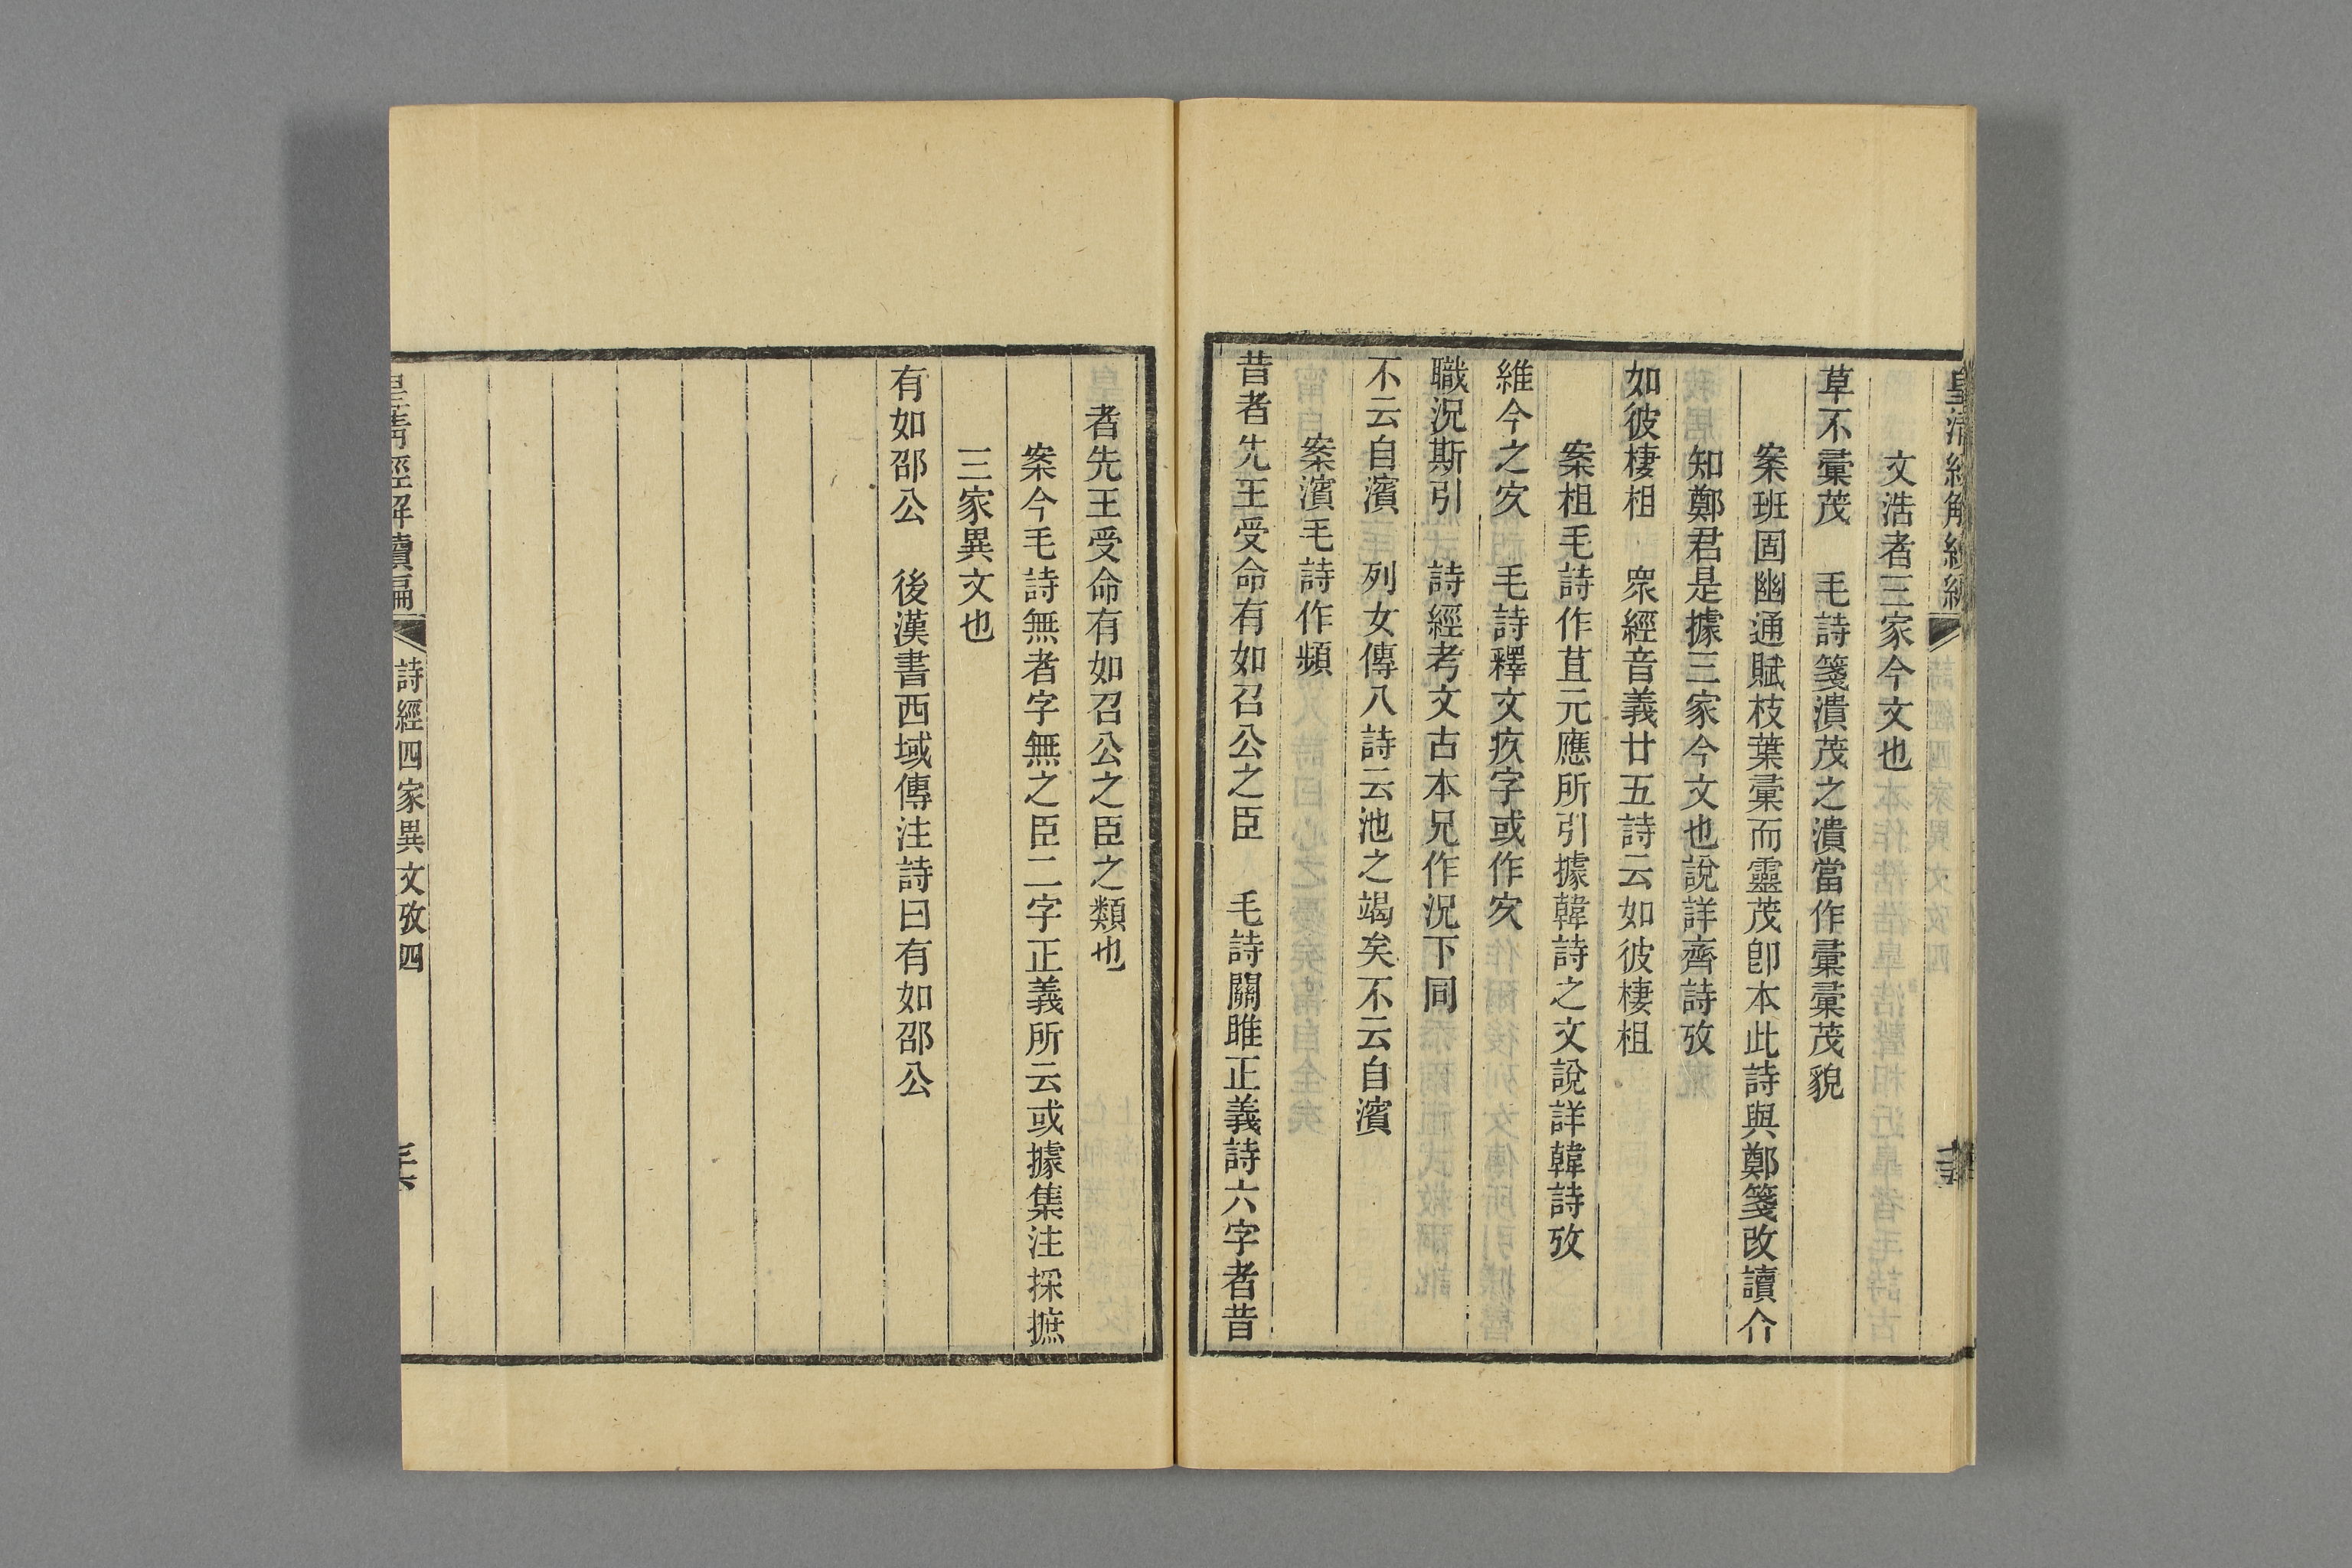 皇清經解續編
文浩者三家今文也
草不彙茂　毛詩箋潰茂之潰當作彙彙茂貌
案班固幽通賦枝葉彙而靈茂卽本此詩與鄭箋改讀介
知鄭君是據三家今文也說詳齊詩攷
如彼棲相　眾經音義廿五詩云如彼棲柤
案柤毛詩作苴元應所引據韓詩之文說詳韓詩攷
維今之㝌　毛詩釋文疚字或作㝌
職況斯引　詩經考文古本兄作況下同
不云自濱　列女傳八詩云池之竭矣不云自濱
案濱毛詩作頻
昔者先王受命有如召公之臣　毛詩關雎正義詩六字者昔
者先王受命有如召公之臣之類也
案今毛詩無者字無之臣二字正義所云或據集注採摭
三家異文也
有如邵公　後漢書西域傳注詩曰有如邵公
皇清經解續編　詩經四家異文攷四